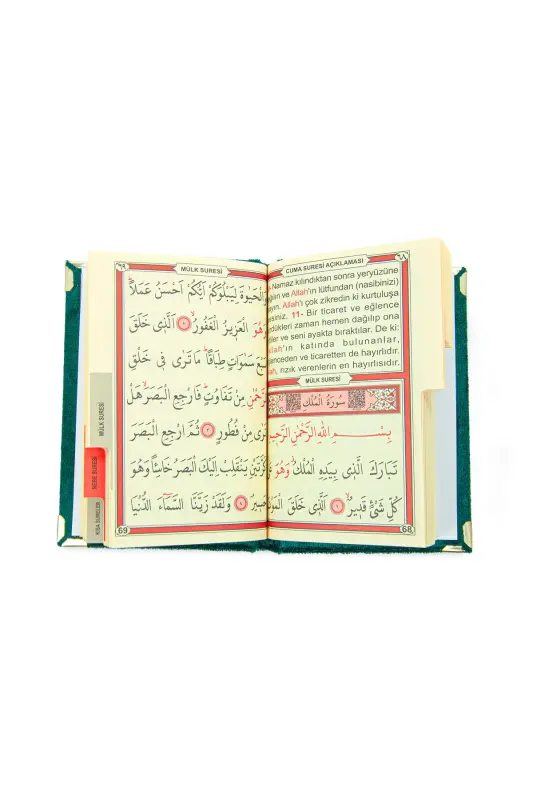 ٦٨
CUMA SURESİ AÇIKLAMASI
Namaz kılındıktan sonra yeryüzüne
ve Allah'ın lütfundan (nasibinizi)
Allah'ı çok zikredin ki kurtuluşa
11- Bir ticaret ve eğlence
zaman hemen dağılıp ona
ve seni ayakta bıraktılar. De ki:
katında bulunanlar,
ve ticaretten de hayırlıdır.
rızık verenlerin en hayırlısıdır.
MÜLK SURESİ
سُورَةُ الْمُلْكِ
بِسْمِ اللهِ الرَّحْمٰنِ الرَّحِيمِ
تَبَارَكَ الَّذِى بِيَدِهِ الْمُلْكُ وَهُوَ
كُلِّ شَىْءٍ قَدِيرٌ ١ اَلَّذِى خَلَقَ
68
٦٩
MÜLK SURESİ
وَالْحَيٰوةَ لِيَبْلُوَكُمْ اَيُّكُمْ اَحْسَنُ عَمَلًا
وَهُوَ الْعَزِيزُ الْغَفُورُ ٢ اَلَّذِى خَلَقَ
سَبْعَ سَمٰوَاتٍ طِبَاقًا مَا تَرٰى فِى خَلْقِ
الرَّحْمٰنِ مِنْ تَفَاوُتٍ فَارْجِعِ الْبَصَرَ هَلْ
تَرٰى مِنْ فُطُورٍ ٣ ثُمَّ ارْجِعِ الْبَصَرَ
كَرَّتَيْنِ يَنْقَلِبْ اِلَيْكَ الْبَصَرُ خَاسِئًا وَهُوَ
حَسِيرٌ ٤ وَلَقَدْ زَيَّنَّا السَّمَاءَ الدُّنْيَا
69
MÜLK SURESİ
NEBE SURESİ
KISA SURELER